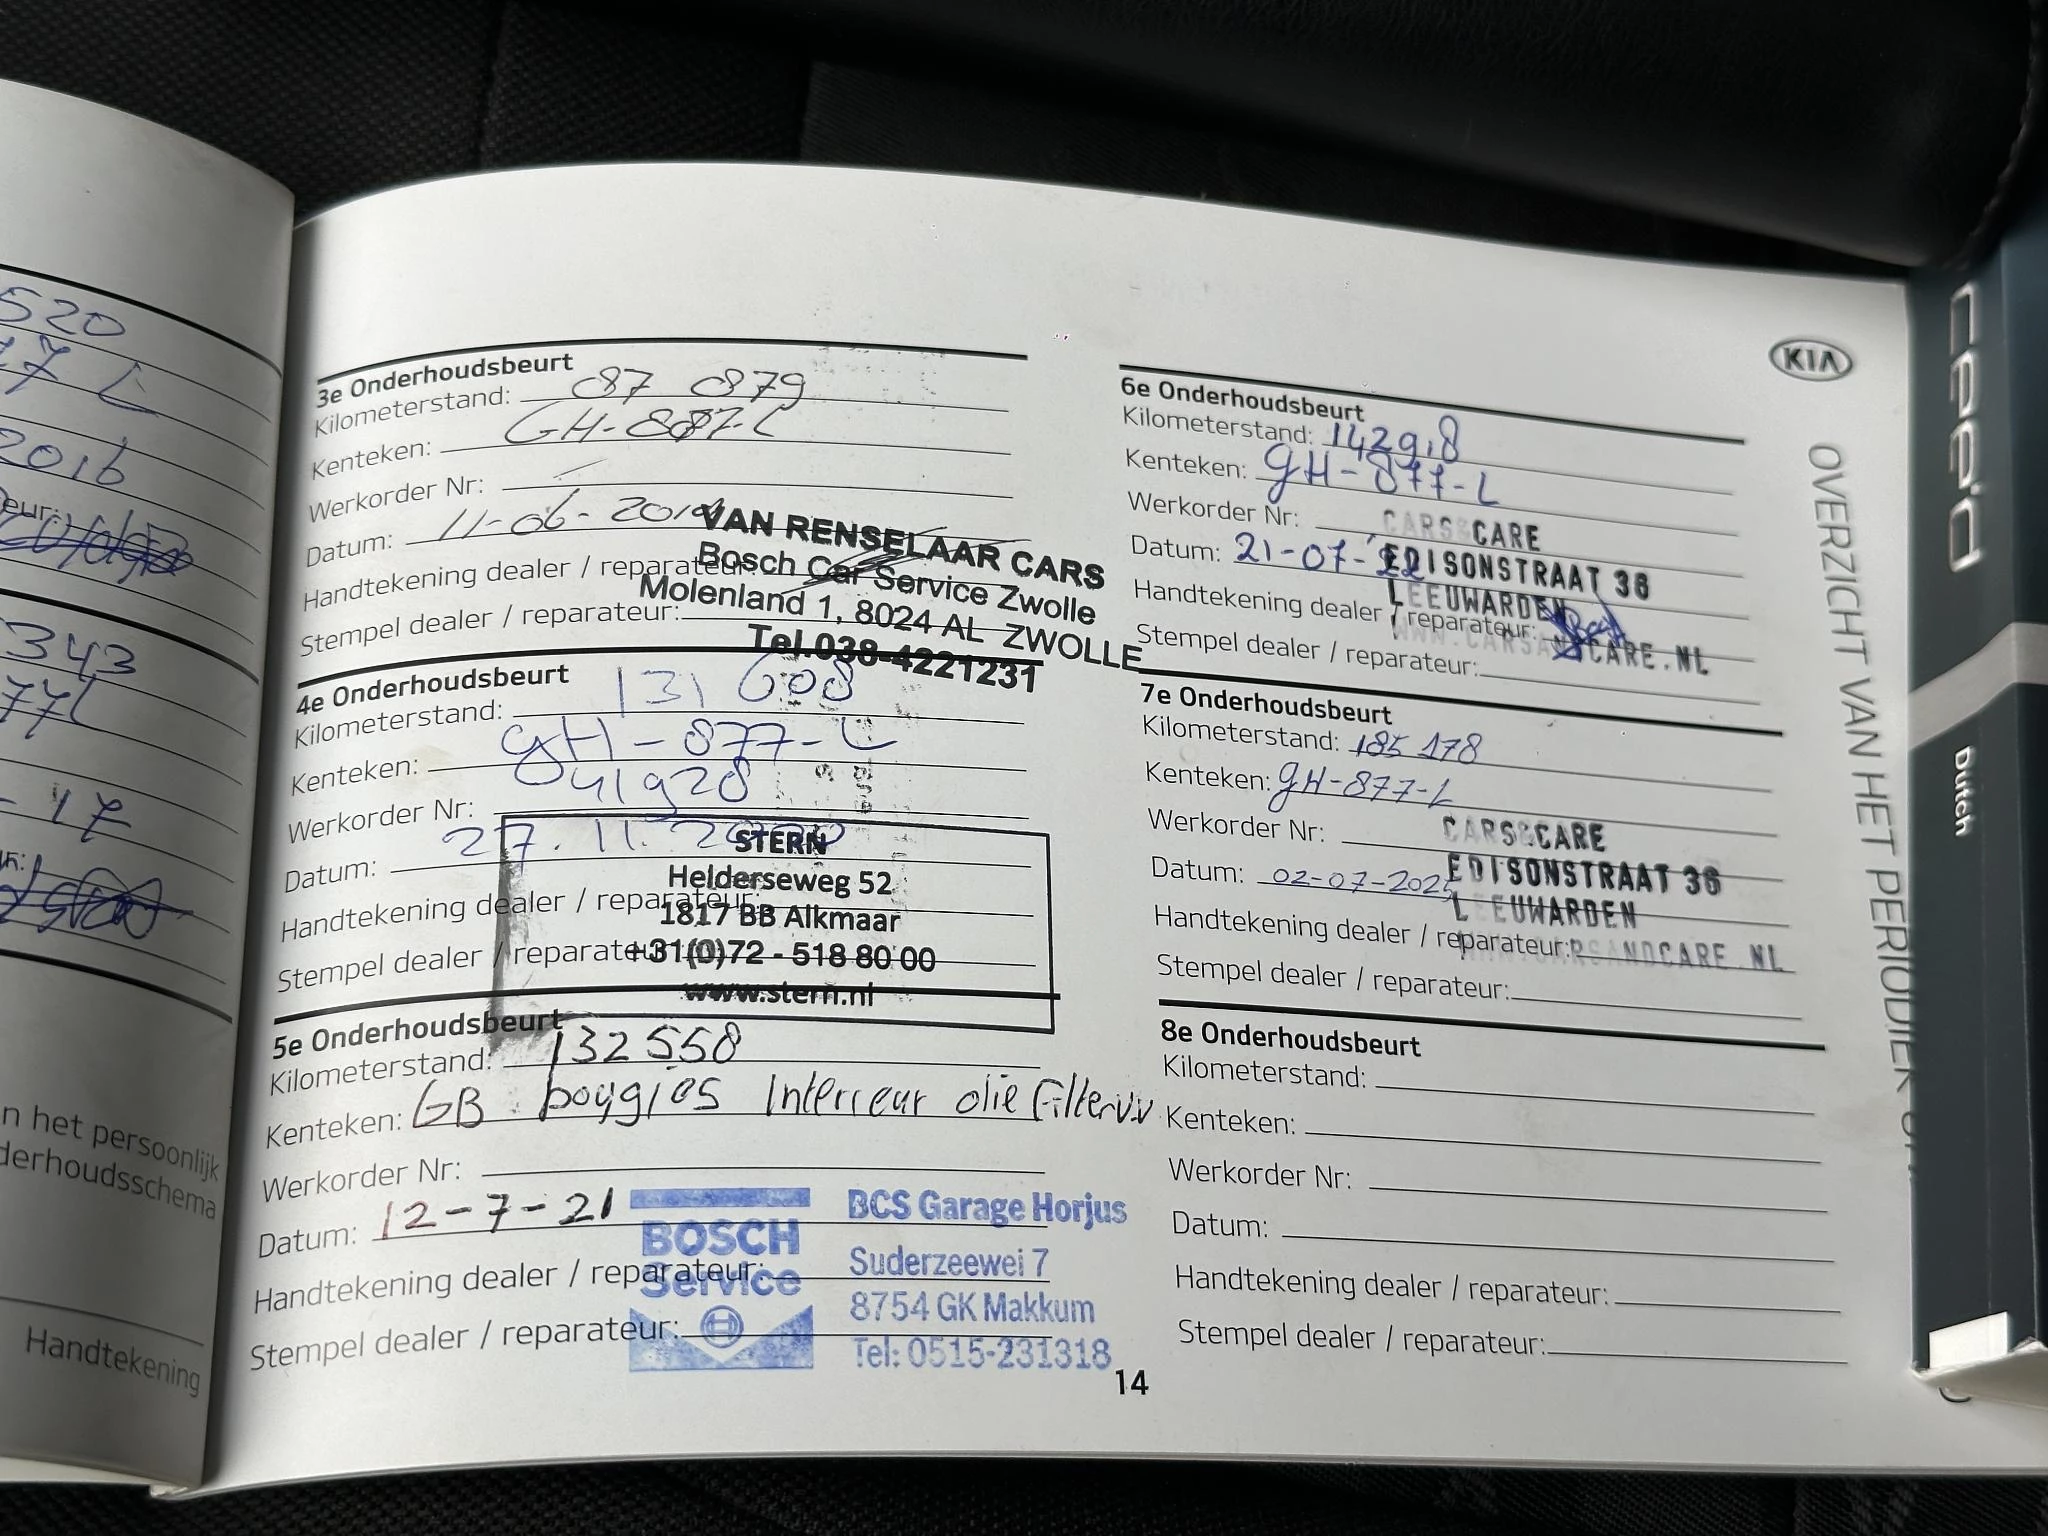 520
77 L
2016
eur:
343
77L
- 17
n het persoonlijk
derhoudsschema
Handtekening
3e Onderhoudsbeurt
Kilometerstand: 087 879
Kenteken: GH-887-L
Werkorder Nr:
Datum: 11-06-201
Handtekening dealer / reparateur:
Stempel dealer / reparateur:
VAN RENSELAAR CARS
Bosch Car Service Zwolle
Molenland 1, 8024 AL ZWOLLE
Tel.038-4221231
4e Onderhoudsbeurt
Kilometerstand: 131 608
Kenteken: gH-877-L
Werkorder Nr: 41928
Datum: 27.11.2020
Handtekening dealer / reparateur:
Stempel dealer / reparateur:
STERN
Helderseweg 52
1817 BB Alkmaar
+31(0)72 - 518 80 00
www.stern.nl
5e Onderhoudsbeurt
Kilometerstand: 132 558
Kenteken: GB bougies Interieur olie Filter
Werkorder Nr:
Datum: 12-7-21
Handtekening dealer / reparateur:
Stempel dealer / reparateur:
BOSCH
Service
BCS Garage Horjus
Suderzeewei 7
8754 GK Makkum
Tel: 0515-231318
14
KIA
6e Onderhoudsbeurt
Kilometerstand: 142918
Kenteken: gH-877-L
Werkorder Nr:
Datum: 21-07-'22
Handtekening dealer / reparateur:
Stempel dealer / reparateur:
CARS&CARE
EDISONSTRAAT 36
LEEUWARDEN
WWW.CARSANDCARE.NL
7e Onderhoudsbeurt
Kilometerstand: 185 178
Kenteken: gH-877-L
Werkorder Nr:
Datum: 02-07-2025
Handtekening dealer / reparateur:
Stempel dealer / reparateur:
CARS&CARE
EDISONSTRAAT 36
LEEUWARDEN
WWW.CARSANDCARE.NL
8e Onderhoudsbeurt
Kilometerstand:
Kenteken:
Werkorder Nr:
Datum:
Handtekening dealer / reparateur:
Stempel dealer / reparateur:
OVERZICHT VAN HET PERIODIEK
cee'd
Dutch